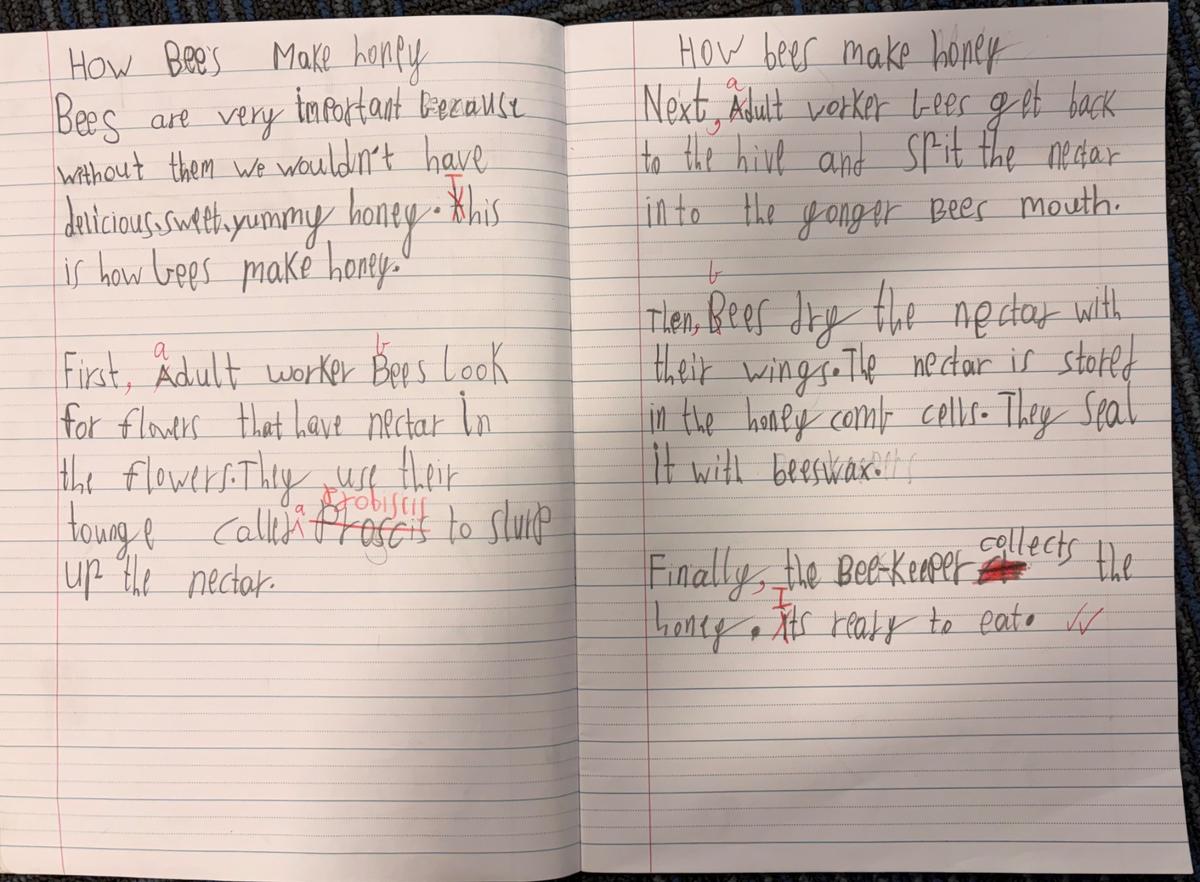 How Bees Make honey
Bees are very important because
without them we wouldn't have
delicious,sweet,yummy honey. This
is how bees make honey.
a b
First, Adult worker Bees Look
for flowers that have nectar in
the flowers. They use their
a Probiscis
tounge called Proscis to slurp
up the nectar.
How bees make honey
a
Next, Adult worker bees get back
to the hive and spit the nectar
into the yonger Bees mouth.
b
Then, Bees dry the nectar with
their wings. The nectar is stored
in the honey comb cells. They Seal
it with beeswax.
collects
Finally, the Bee-Keeper the
honey. Its ready to eat.